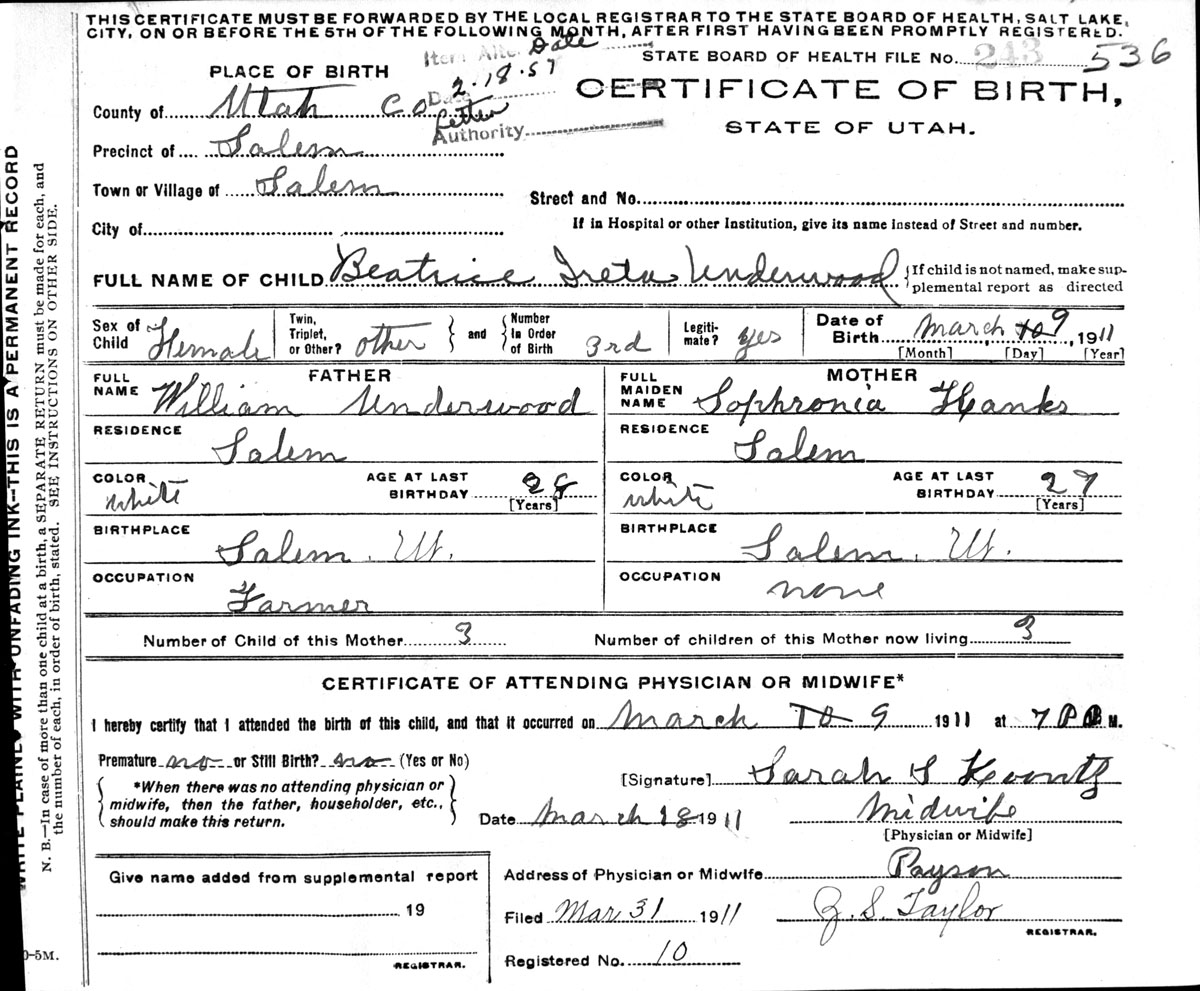 THIS CERTIFICATE MUST BE FORWARDED BY THE LOCAL REGISTRAR TO THE STATE BOARD OF HEALTH, SALT LAKE,
CITY, ON OR BEFORE THE 5TH OF THE FOLLOWING MONTH, AFTER FIRST HAVING BEEN PROMPTLY REGISTERED.
Item Alte Date
STATE BOARD OF HEALTH FILE No. 243 536
PLACE OF BIRTH
2.18.57
CERTIFICATE OF BIRTH,
County of Utah Co
Letter
Authority
STATE OF UTAH.
Precinct of Salem
Town or Village of Salem
Street and No.
City of
If in Hospital or other Institution, give its name instead of Street and number.
FULL NAME OF CHILD Beatrice Ireta Underwood {If child is not named, make sup-
plemental report as directed
Sex of Child Female Twin, Triplet, or Other? other and Number In Order of Birth 3rd Legiti-mate? yes Date of Birth March 10 9, 1911
[Month] [Day] [Year]
FATHER
FULL NAME William Underwood
RESIDENCE
Salem
COLOR white AGE AT LAST BIRTHDAY 28
[Years]
BIRTHPLACE
Salem. Ut.
OCCUPATION
Farmer
MOTHER
FULL MAIDEN NAME Sophronia Hanks
RESIDENCE
Salem
COLOR white AGE AT LAST BIRTHDAY 27
[Years]
BIRTHPLACE
Salem. Ut.
OCCUPATION
none
Number of Child of this Mother 3 Number of children of this Mother now living 3
CERTIFICATE OF ATTENDING PHYSICIAN OR MIDWIFE*
I hereby certify that I attended the birth of this child, and that it occurred on March 10 9 1911 at 7 P M.
Premature no or Still Birth? no (Yes or No)
[Signature] Sarah S Koontz
*When there was no attending physician or
midwife, then the father, householder, etc.,
should make this return.
Date March 18 1911 Midwife
[Physician or Midwife]
Give name added from supplemental report
19
REGISTRAR.
Address of Physician or Midwife Payson
Filed Mar 31 1911 Z. S. Taylor
REGISTRAR.
Registered No. 10
WRITE PLAINLY WITH UNFADING INK--THIS IS A PERMANENT RECORD
N. B.—In case of more than one child at a birth, a SEPARATE RETURN must be made for each, and
the number of each, in order of birth, stated. SEE INSTRUCTIONS ON OTHER SIDE.
0-5M.